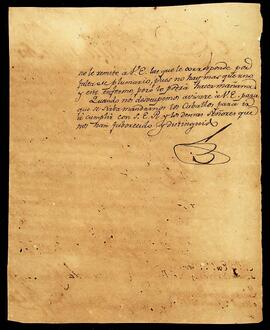 no le remite a V.E. las que le corresponde por
falta de plumario, pues no hay mas que uno
y este enfermo, pero lo hará hacer mañana.
Quando nos desocupemos avisaré a V.E. para
que se sirba mandarnos los Caballos para ir
á cumplir con S.E. y los demas Señores que
nos han faborecido y distinguido